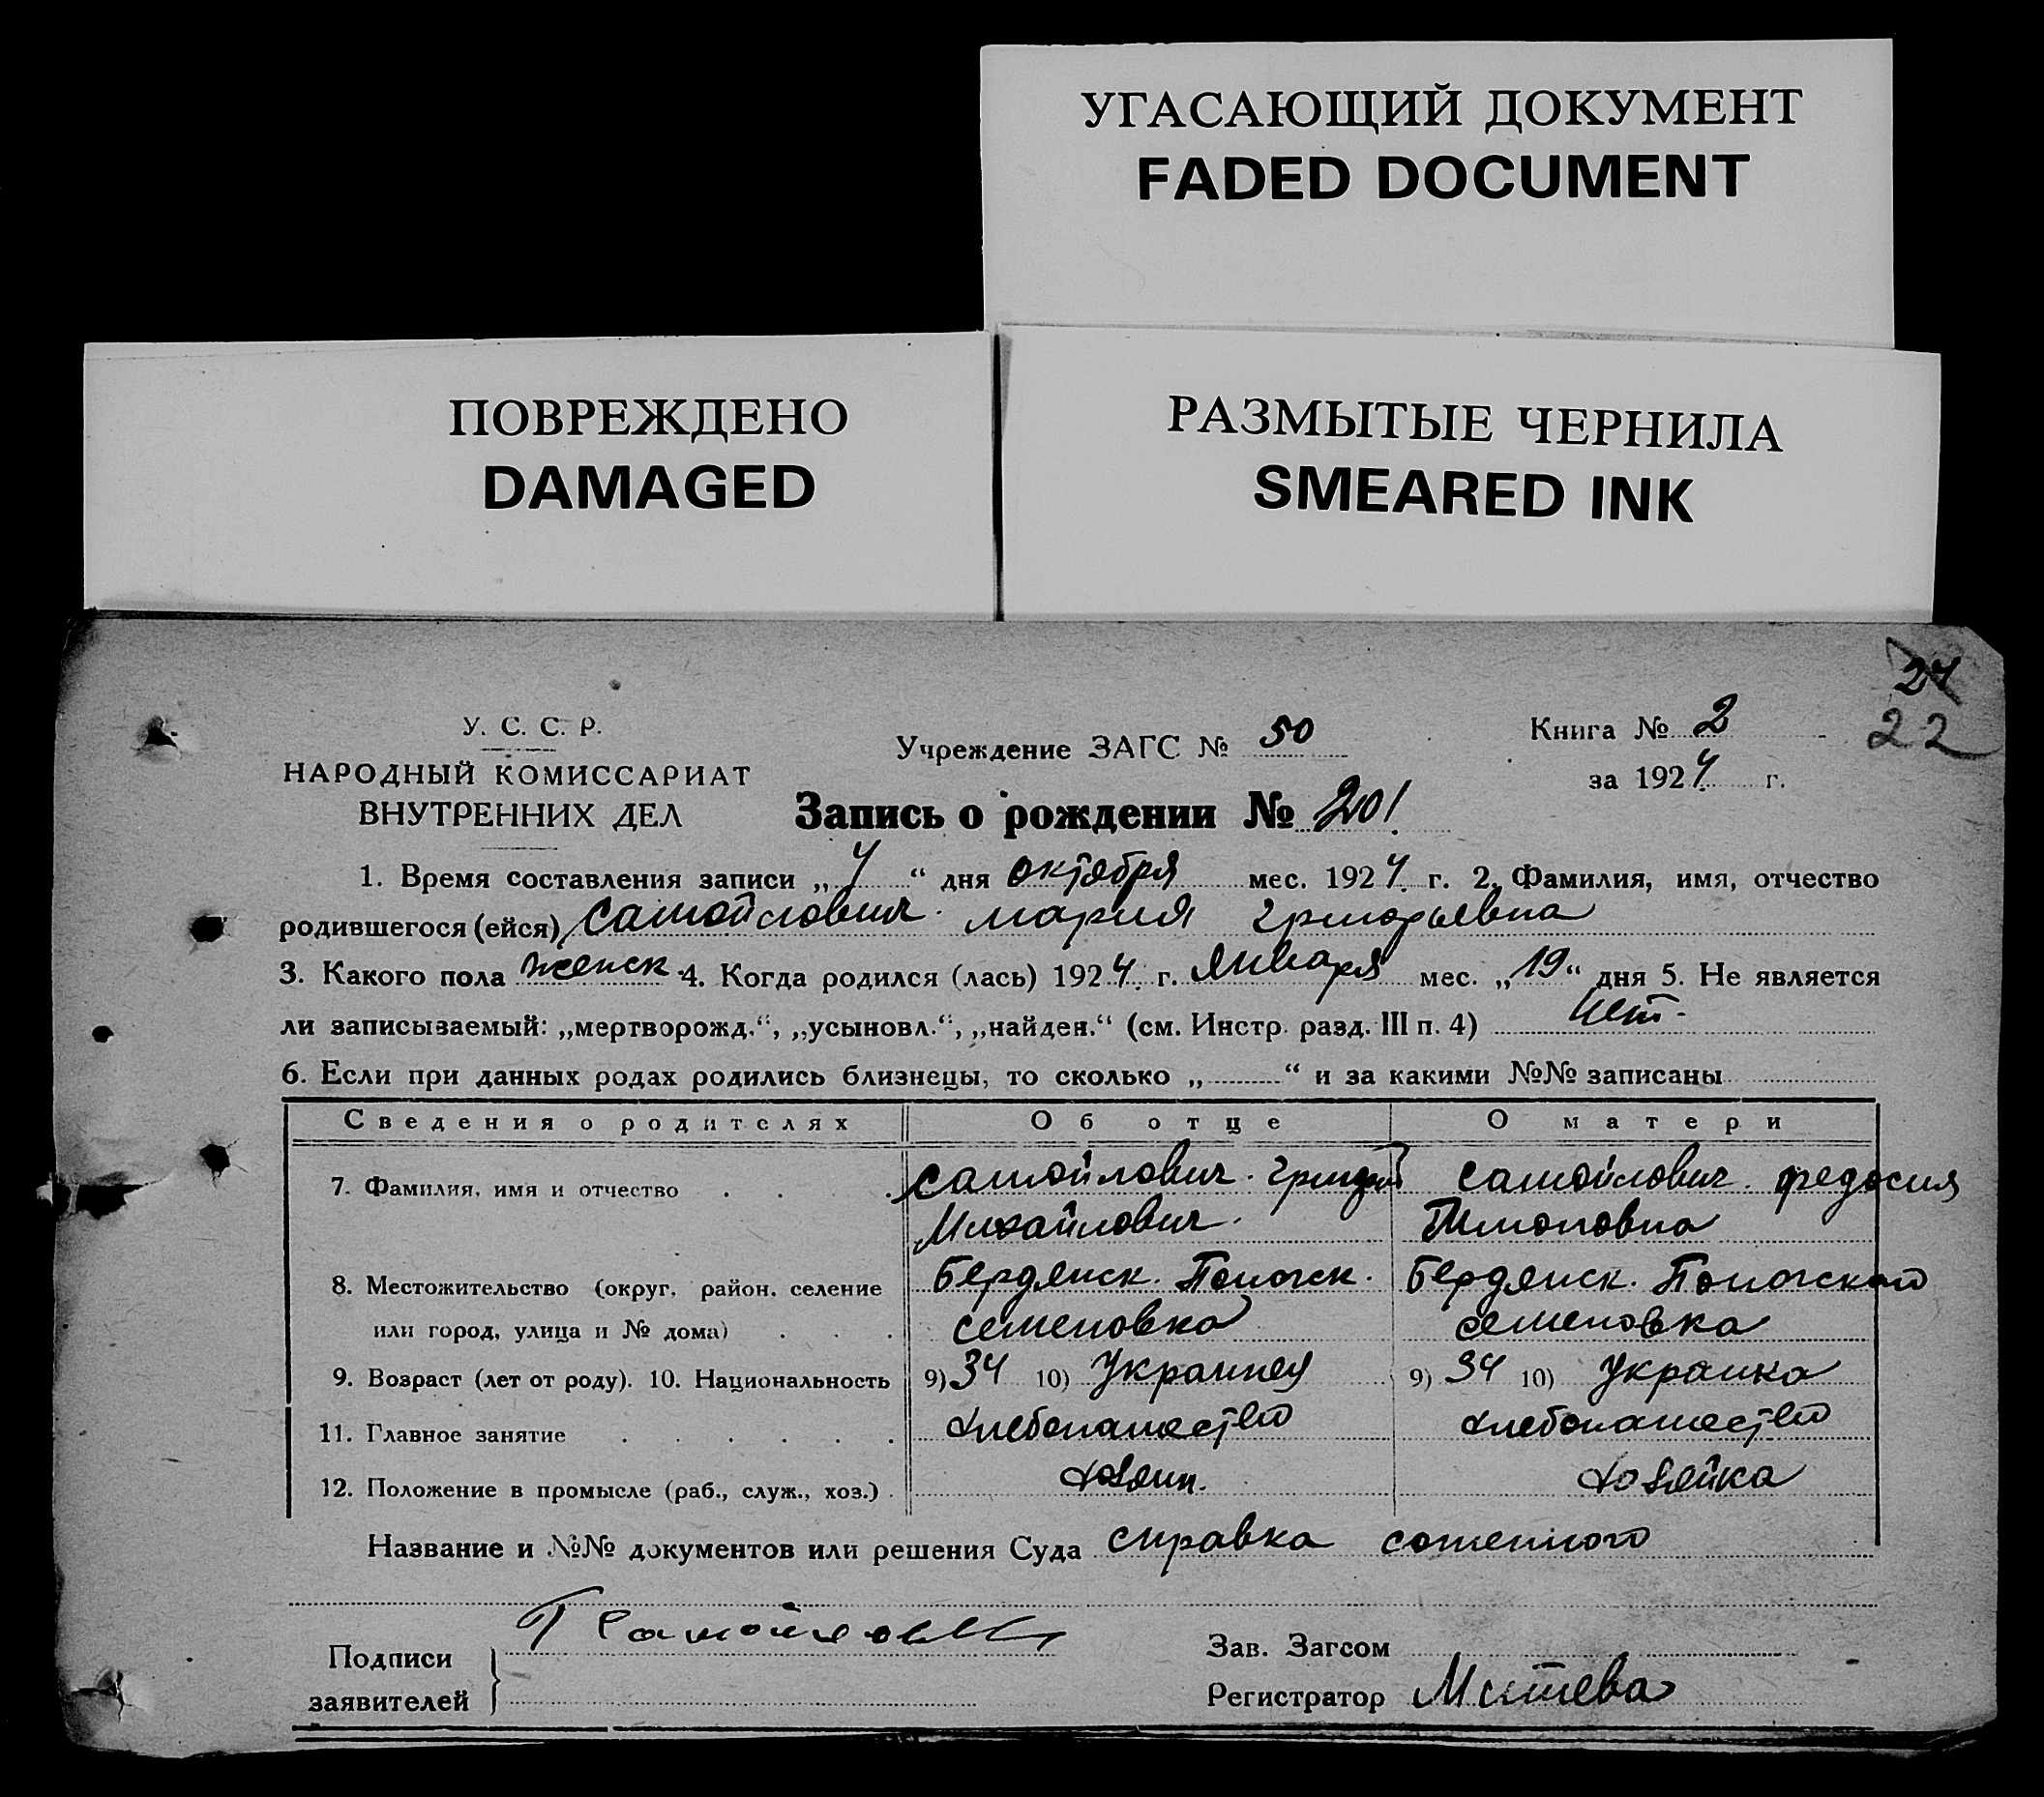 УГАСАЮЩИЙ ДОКУМЕНТ
FADED DOCUMENT
ПОВРЕЖДЕНО
DAMAGED
РАЗМЫТЫЕ ЧЕРНИЛА
SMEARED INK
24
22
У. С. С. Р.
НАРОДНЫЙ КОМИССАРИАТ
ВНУТРЕННИХ ДЕЛ
Учреждение ЗАГС № 50
Книга № 2
за 1924 г.
Запись о рождении № 201
1. Время составления записи „ 4 “ дня октября мес. 1924 г. 2. Фамилия, имя, отчество
родившегося (ейся) Самойлович Мария Григорьевна
3. Какого пола женск. 4. Когда родился (лась) 1924 г. января мес. „ 19 “ дня 5. Не является
ли записываемый: „мертворожд.“, „усыновл.“, „найден.“ (см. Инстр. разд. III п. 4) нет.
6. Если при данных родах родились близнецы, то сколько „ “ и за какими №№ записаны
Сведения о родителях Об отце О матери
7. Фамилия, имя и отчество Самойлович Григорий Самойлович Федосия
Михайлович
8. Местожительство (округ, район, селение Бердянск. Пологск. Бердянск. Пологского
или город, улица и № дома) Семеновка Семеновка
9. Возраст (лет от роду). 10. Национальность 9) 34 10) Украинец 9) 34 10) Украинка
11. Главное занятие хлебопашество хлебопашество
12. Положение в промысле (раб., служ., хоз.) хозяин. хозяйка
Название и №№ документов или решения Суда справка
Подписи Г Самойлович
заявителей
Зав. Загсом
Регистратор